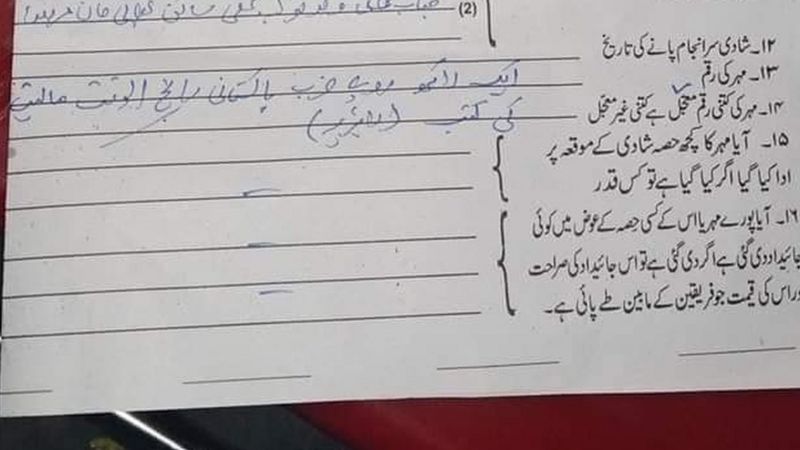 (2)
۱۲۔ شادی سرانجام پانے کی تاریخ
۱۳۔ مہر کی رقم
ایک لاکھ روپے ضرب پاکستانی رائج الوقت مالیت
۱۴۔ مہر کی کتنی رقم معجّل ہے کتنی غیر معجّل
کی کتب (لائبریری)
۱۵۔ آیا مہر کا کچھ حصہ شادی کے موقعہ پر
ادا کیا گیا اگر کیا گیا ہے تو کس قدر
۱۶۔ آیا پورے مہر یا اس کے کسی حِصہ کے عوض میں کوئی
جائیداد دی گئی ہے اگر دی گئی ہے تو اس جائیداد کی صراحت
وراس کی قیمت جو فریقین کے مابین طے پائی ہے۔